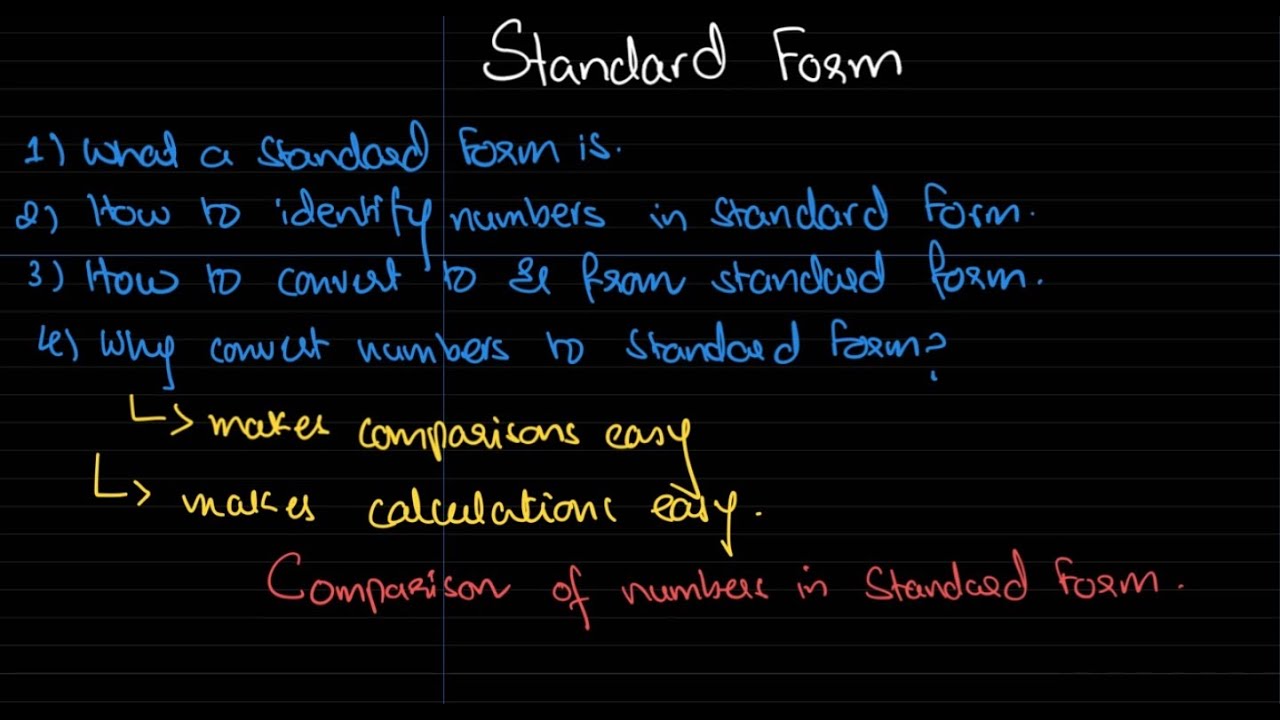 Standard Form
1) What a standard Form is.
2) How to identify numbers in standard form.
3) How to convert to & from standard form.
4) Why convert numbers to standard form?
↳ makes comparisons easy
↳ makes calculations easy.
Comparison of numbers in Standard Form.